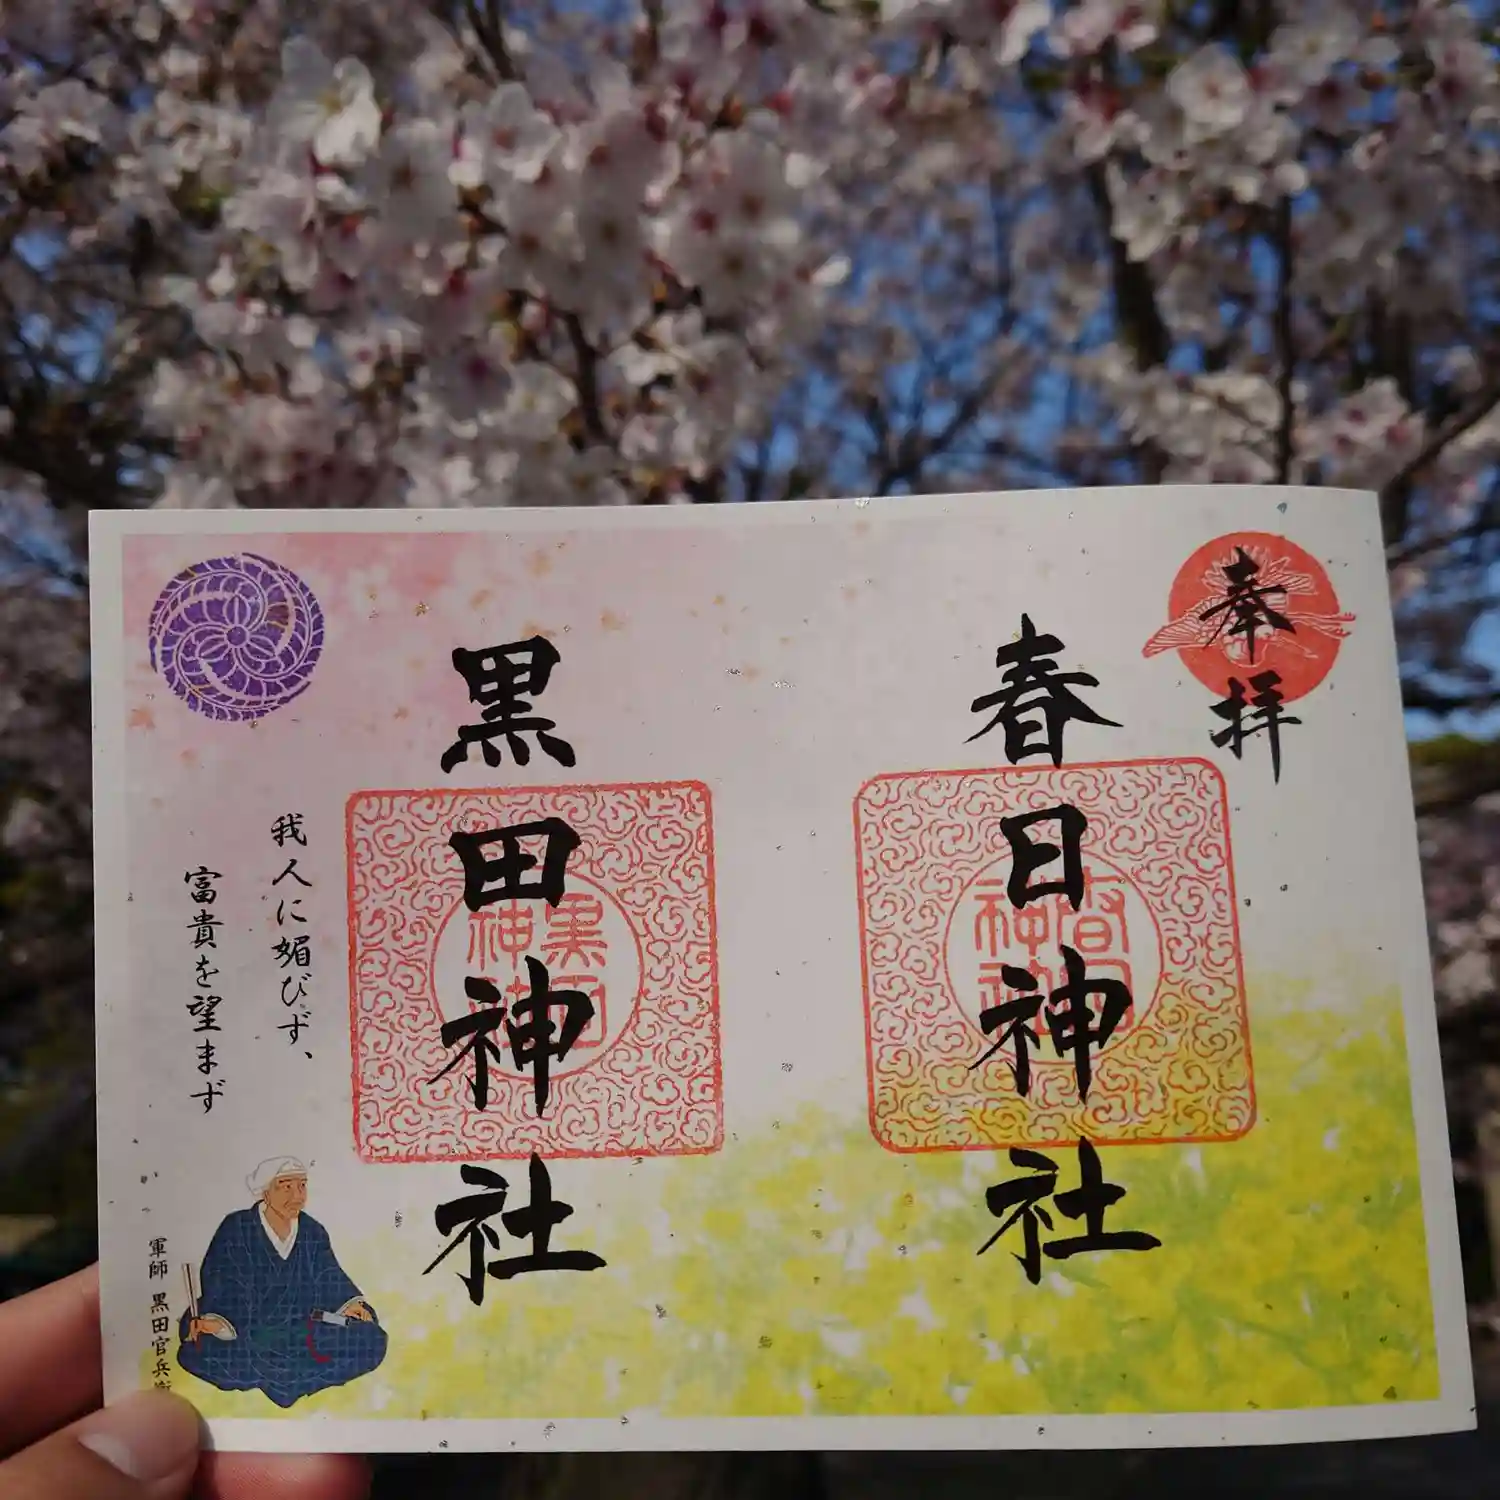 奉拝
春日神社
黒田神社
我人に媚びず、
富貴を望まず
軍師 黒田官兵衛
春日神社
黒田神社